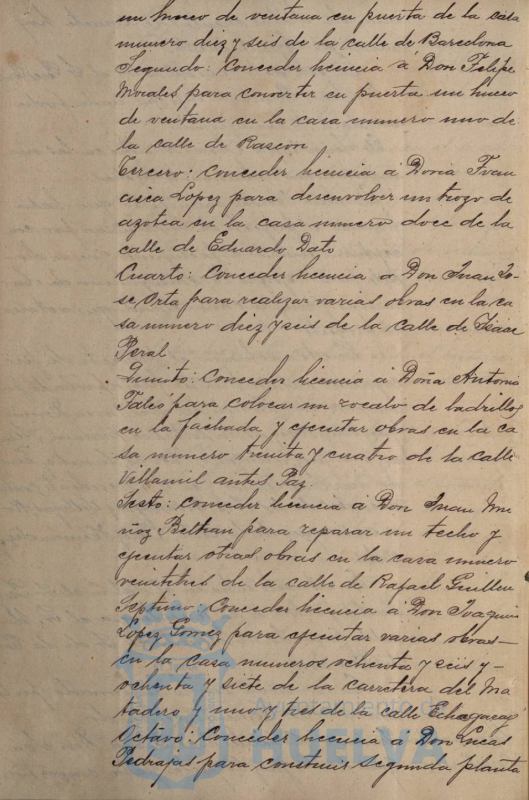 un hueco de ventana en puerta de la casa
numero diez y seis de la calle de Barcelona
Segundo: Conceder licencia á Don Felipe
Morales para convertir en puerta un hueco
de ventana en la casa numero uno de
la calle de Rascon
Tercero: Conceder licencia á Doña Fran
cisca Lopez para desenvolver un trozo de
azotea en la casa numero doce de la
calle de Eduardo Dato
Cuarto: Conceder licencia a Don Juan Jo-
se Orta para realizar varias obras en la ca
sa numero diez y seis de la calle de Isaac
Peral
Quinto: Conceder licencia á Doña Antonia
para colocar un zocalo de ladrillos
en la fachada y ejecutar obras en la ca
sa numero treinta y cuatro de la calle
Villamil antes Paz.
Sesto: Conceder licencia á Don Juan Mu
ñoz Beltran para reparar un techo y
ejecutar otras obras en la casa numero
veintitres de la calle de Rafael Guillen
Septimo: Conceder licencia á Don Joaquin
Lopez Gomez para ejecutar varias obras-
en la casa numeros ochenta y seis y-
ochenta y siete de la carretera del Ma
tadero y uno y tres de la calle Echegaray
Octavo: Conceder licencia á Don Lucas
Pedrajas para construir segunda planta
Ayuntamiento de
HUELVA